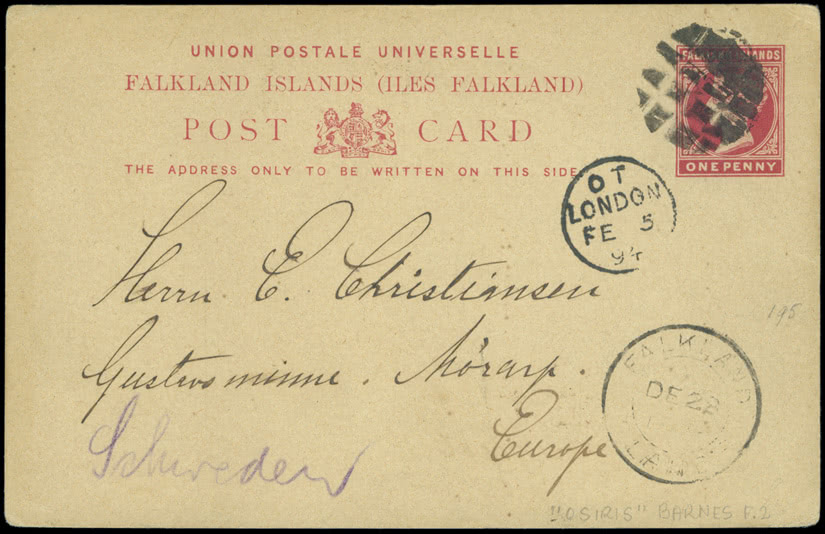 UNION POSTALE UNIVERSELLE
FALKLAND ISLANDS (ILES FALKLAND)
POST CARD
THE ADDRESS ONLY TO BE WRITTEN ON THIS SIDE
FALKLAND ISLANDS
ONE PENNY
OT
LONDON
FE 5
94
Herrn E. Christiansen
Gustavsminne. Mörarp.
Europe
Schweden
195
FALKLAND
DE 22
"OSIRIS" BARNES F.2